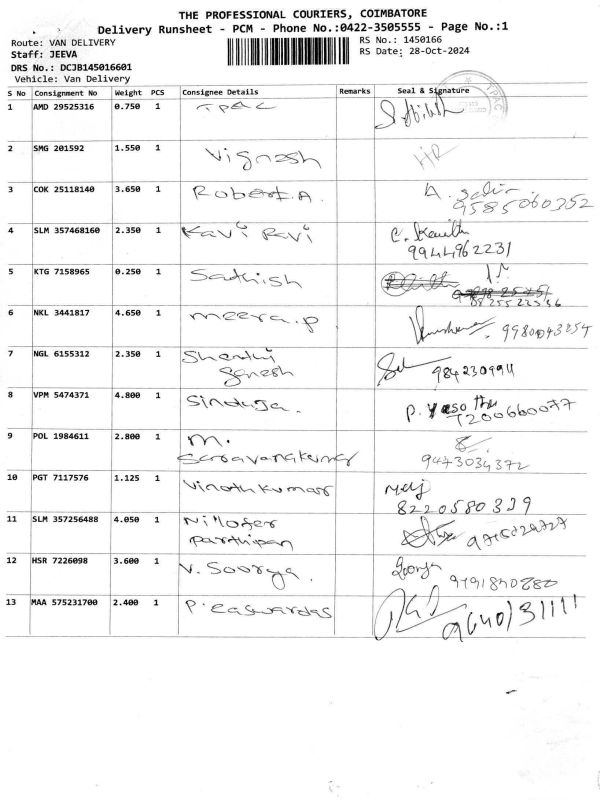 THE PROFESSIONAL COURIERS, COIMBATORE
Delivery Runsheet - PCM - Phone No.:0422-3505555 - Page No.:1
Route: VAN DELIVERY
RS No.: 1450166
Staff: JEEVA
RS Date: 28-Oct-2024
DRS No.: DCJB145016601
Vehicle: Van Delivery
S No Consignment No Weight PCS Consignee Details Remarks Seal & Signature
1 AMD 29525316 0.750 1 TPAC
2 SMG 201592 1.550 1 Vignesh HR
3 COK 25118140 3.650 1 Robert.A.
9585060352
4 SLM 357468160 2.350 1 Kavi Ravi
9944962231
5 KTG 7158965 0.250 1 Sathish
6 NKL 3441817 4.650 1 meera.p
7 NGL 6155312 2.350 1 Shenthi
Ganesh
8 VPM 5474371 4.800 1 Sinduja.
9 POL 1984611 2.800 1 M.
Saravanakumar
9473034372
10 PGT 7117576 1.125 1 Vinothkumar
8220580339
11 SLM 357256488 4.050 1 Nillofer
Parthipan
12 HSR 7226098 3.600 1 V. Soorya. Soorya
13 MAA 575231700 2.400 1 P. Easwardas